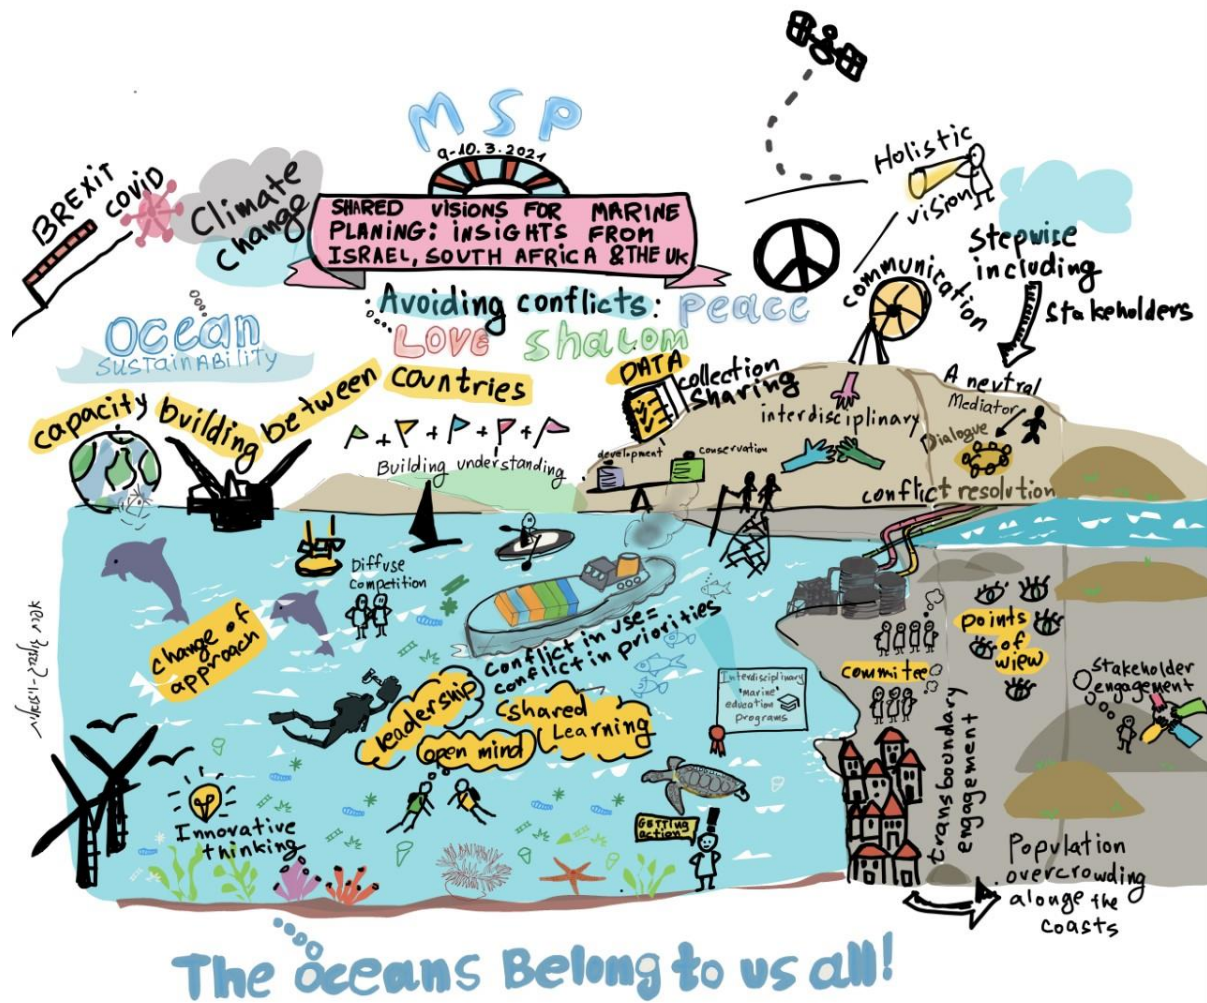 MSP
9-10.3.2021
SHARED VISIONS FOR MARINE
PLANING: INSIGHTS FROM
ISRAEL, SOUTH AFRICA & THE UK
BREXIT
COVID
Climate
change
Holistic
vision
Stepwise
including
stakeholders
communication
Avoiding conflicts: Peace
LOVE shalom
OCEAN
SUSTAINABILITY
capacity building between countries
+ + + +
Building understanding
DATA
collection
Sharing
interdisciplinary
development
conservation
A neutral
Mediator
Dialogue
conflict resolution
Diffuse
competition
change of
approach
conflict in use =
conflict in priorities
leadership
open mind
shared
Learning
Interdisciplinary
'marine'
education
programs
committee
points
of
wiew
stakeholder
engagement
transboundary
engagement
Innovative
thinking
GETTING
action
Population
overcrowding
alounge the
coasts
The oceans Belong to us all!